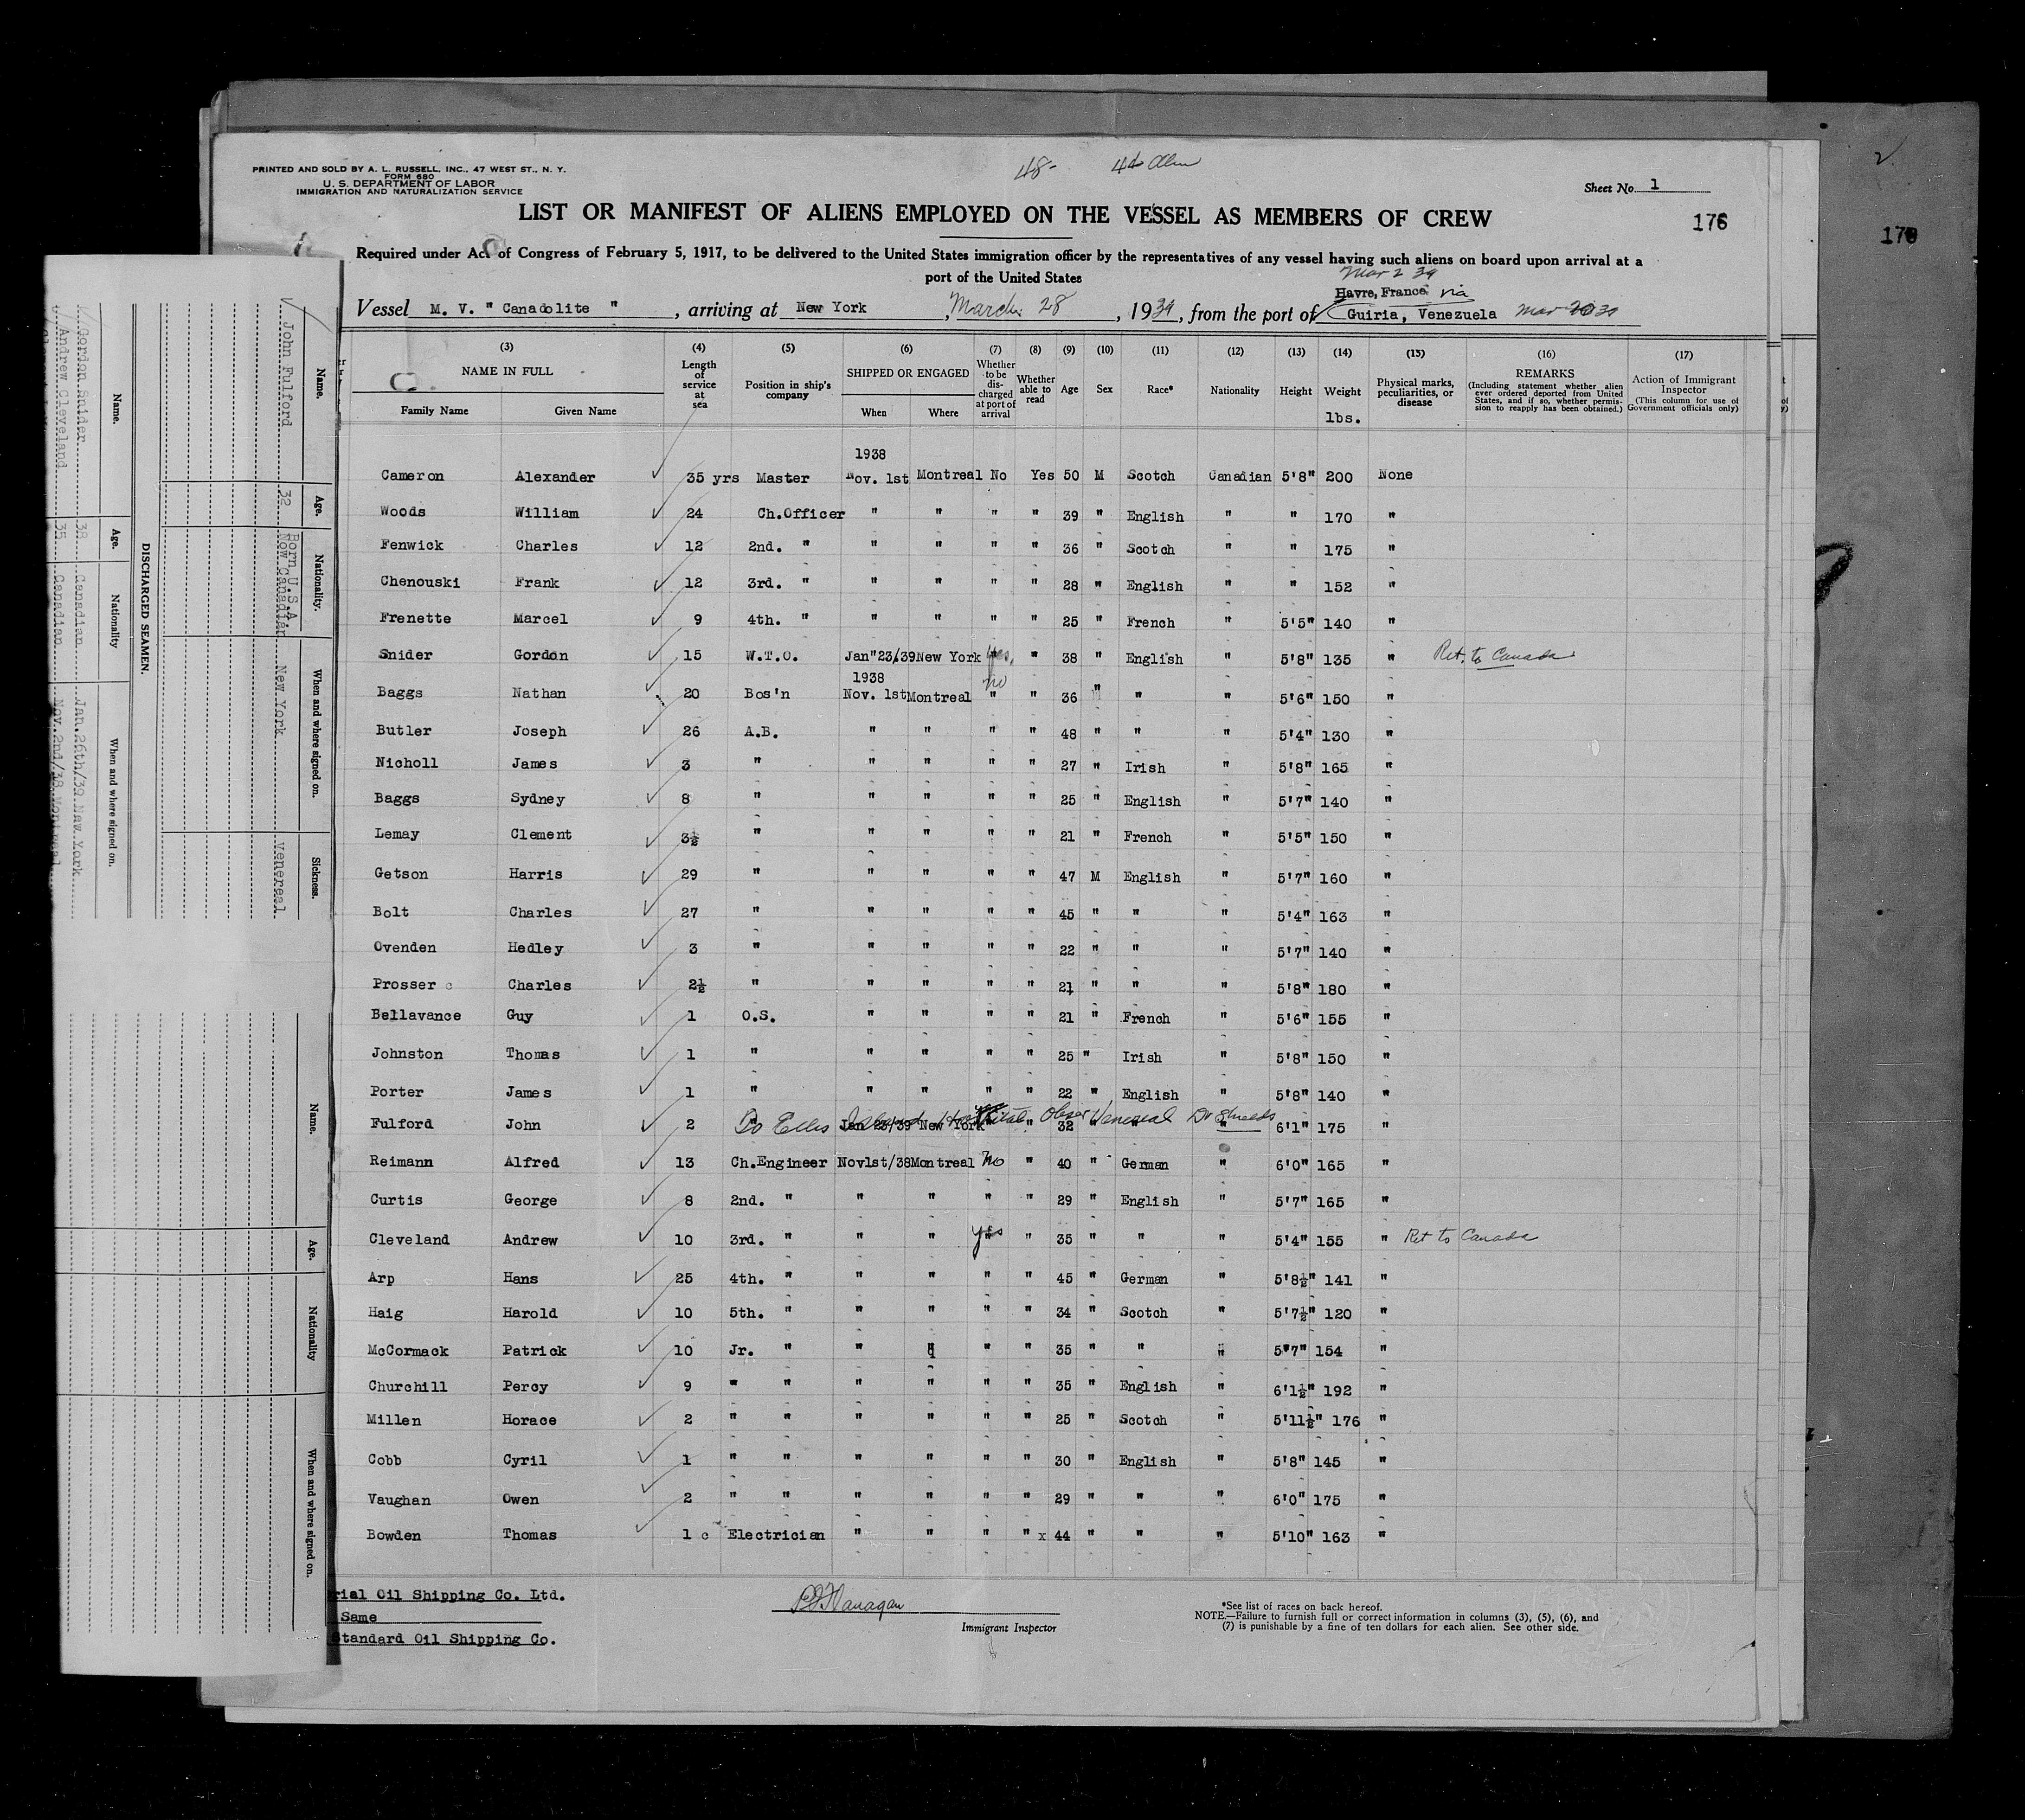 48-
PRINTED AND SOLD BY A. L. RUSSELL, INC., 47 WEST ST., N. Y.
FORM 680
U. S. DEPARTMENT OF LABOR
IMMIGRATION AND NATURALIZATION SERVICE
Sheet No. 1
LIST OR MANIFEST OF ALIENS EMPLOYED ON THE VESSEL AS MEMBERS OF CREW
176
Required under Act of Congress of February 5, 1917, to be delivered to the United States immigration officer by the representatives of any vessel having such aliens on board upon arrival at a
port of the United States
Mar 2 39
Havre, France via
Vessel M. V. " Canadolite ", arriving at New York, March 28, 1939, from the port of Guiria, Venezuela
(3) (4) (5) (6) (7) (8) (9) (10) (11) (12) (13) (14) (15) (16) (17)
NAME IN FULL Family Name Given Name
Length of service at sea
Position in ship's company
SHIPPED OR ENGAGED When Where
Whether to be discharged at port of arrival
Whether able to read
Age Sex Race* Nationality Height Weight lbs.
Physical marks, peculiarities, or disease
REMARKS (Including statement whether alien ever ordered deported from United States, and if so, whether permission to reapply has been obtained.)
Action of Immigrant Inspector (This column for use of Government officials only)
1938
Cameron Alexander 35 yrs Master Nov. 1st Montreal No Yes 50 M Scotch Canadian 5'8" 200 None
Woods William 24 Ch.Officer " " " " 39 " English " " 170 "
Fenwick Charles 12 2nd. " " " " " 36 " Scotch " " 175 "
Chenouski Frank 12 3rd. " " " " " 28 " English " " 152 "
Frenette Marcel 9 4th. " " " " " 25 " French " 5'5" 140 "
Snider Gordon 15 W.T.O. Jan"23/39 New York Yes, " 38 " English " 5'8" 135 " Ret. to Canada
1938 No
Baggs Nathan 20 Bos'n Nov. 1st Montreal " " 36 " " " 5'6" 150 "
Butler Joseph 26 A.B. " " " " 48 " " " 5'4" 130 "
Nicholl James 3 " " " " " 27 " Irish " 5'8" 165 "
Baggs Sydney 8 " " " " " 25 " English " 5'7" 140 "
Lemay Clement 3½ " " " " " 21 " French " 5'5" 150 "
Getson Harris 29 " " " " " 47 M English " 5'7" 160 "
Bolt Charles 27 " " " " " 45 " " " 5'4" 163 "
Ovenden Hedley 3 " " " " " 22 " " " 5'7" 140 "
Prosser c Charles 2½ " " " " " 21 " " " 5'8" 180 "
Bellavance Guy 1 O.S. " " " " 21 " French " 5'6" 155 "
Johnston Thomas 1 " " " " " 25 " Irish " 5'8" 150 "
Porter James 1 " " " " " 22 " English " 5'8" 140 "
To Ellis Island Hospital Obser Venereal Dr Shields
Fulford John 2 Jan 23/39 New York " 32 " " 6'1" 175 "
Reimann Alfred 13 Ch.Engineer Nov1st/38 Montreal No " 40 " German " 6'0" 165 "
Curtis George 8 2nd. " " " " " 29 " English " 5'7" 165 "
Cleveland Andrew 10 3rd. " " " yes " 35 " " " 5'4" 155 " Ret to Canada
Arp Hans 25 4th. " " " " " 45 " German " 5'8½" 141 "
Haig Harold 10 5th. " " " " " 34 " Scotch " 5'7½" 120 "
McCormack Patrick 10 Jr. " " " " " 35 " " " 5"7" 154 "
Churchill Percy 9 " " " " " " 35 " English " 6'1½" 192 "
Millen Horace 2 " " " " " " 25 " Scotch " 5'11½" 176 "
Cobb Cyril 1 " " " " " " 30 " English " 5'8" 145 "
Vaughan Owen 2 " " " " " " 29 " " " 6'0" 175 "
Bowden Thomas 1 c Electrician " " " " x 44 " " " 5'10" 163 "
rial Oil Shipping Co. Ltd.
Same
Standard Oil Shipping Co.
Immigrant Inspector
*See list of races on back hereof.
NOTE.—Failure to furnish full or correct information in columns (3), (5), (6), and
(7) is punishable by a fine of ten dollars for each alien. See other side.
Name. Age. Nationality. When and where signed on. Sickness.
John Fulford 32 Born U.S.A. Now Canadian New York Venereal
DISCHARGED SEAMEN.
Name. Age. Nationality When and where signed on.
Gordon Snider 38 Canadian Jan.26th/39 New York
Andrew Cleveland 35 Canadian Nov.2nd/38 Montreal
Name. Age. Nationality When and where signed on.